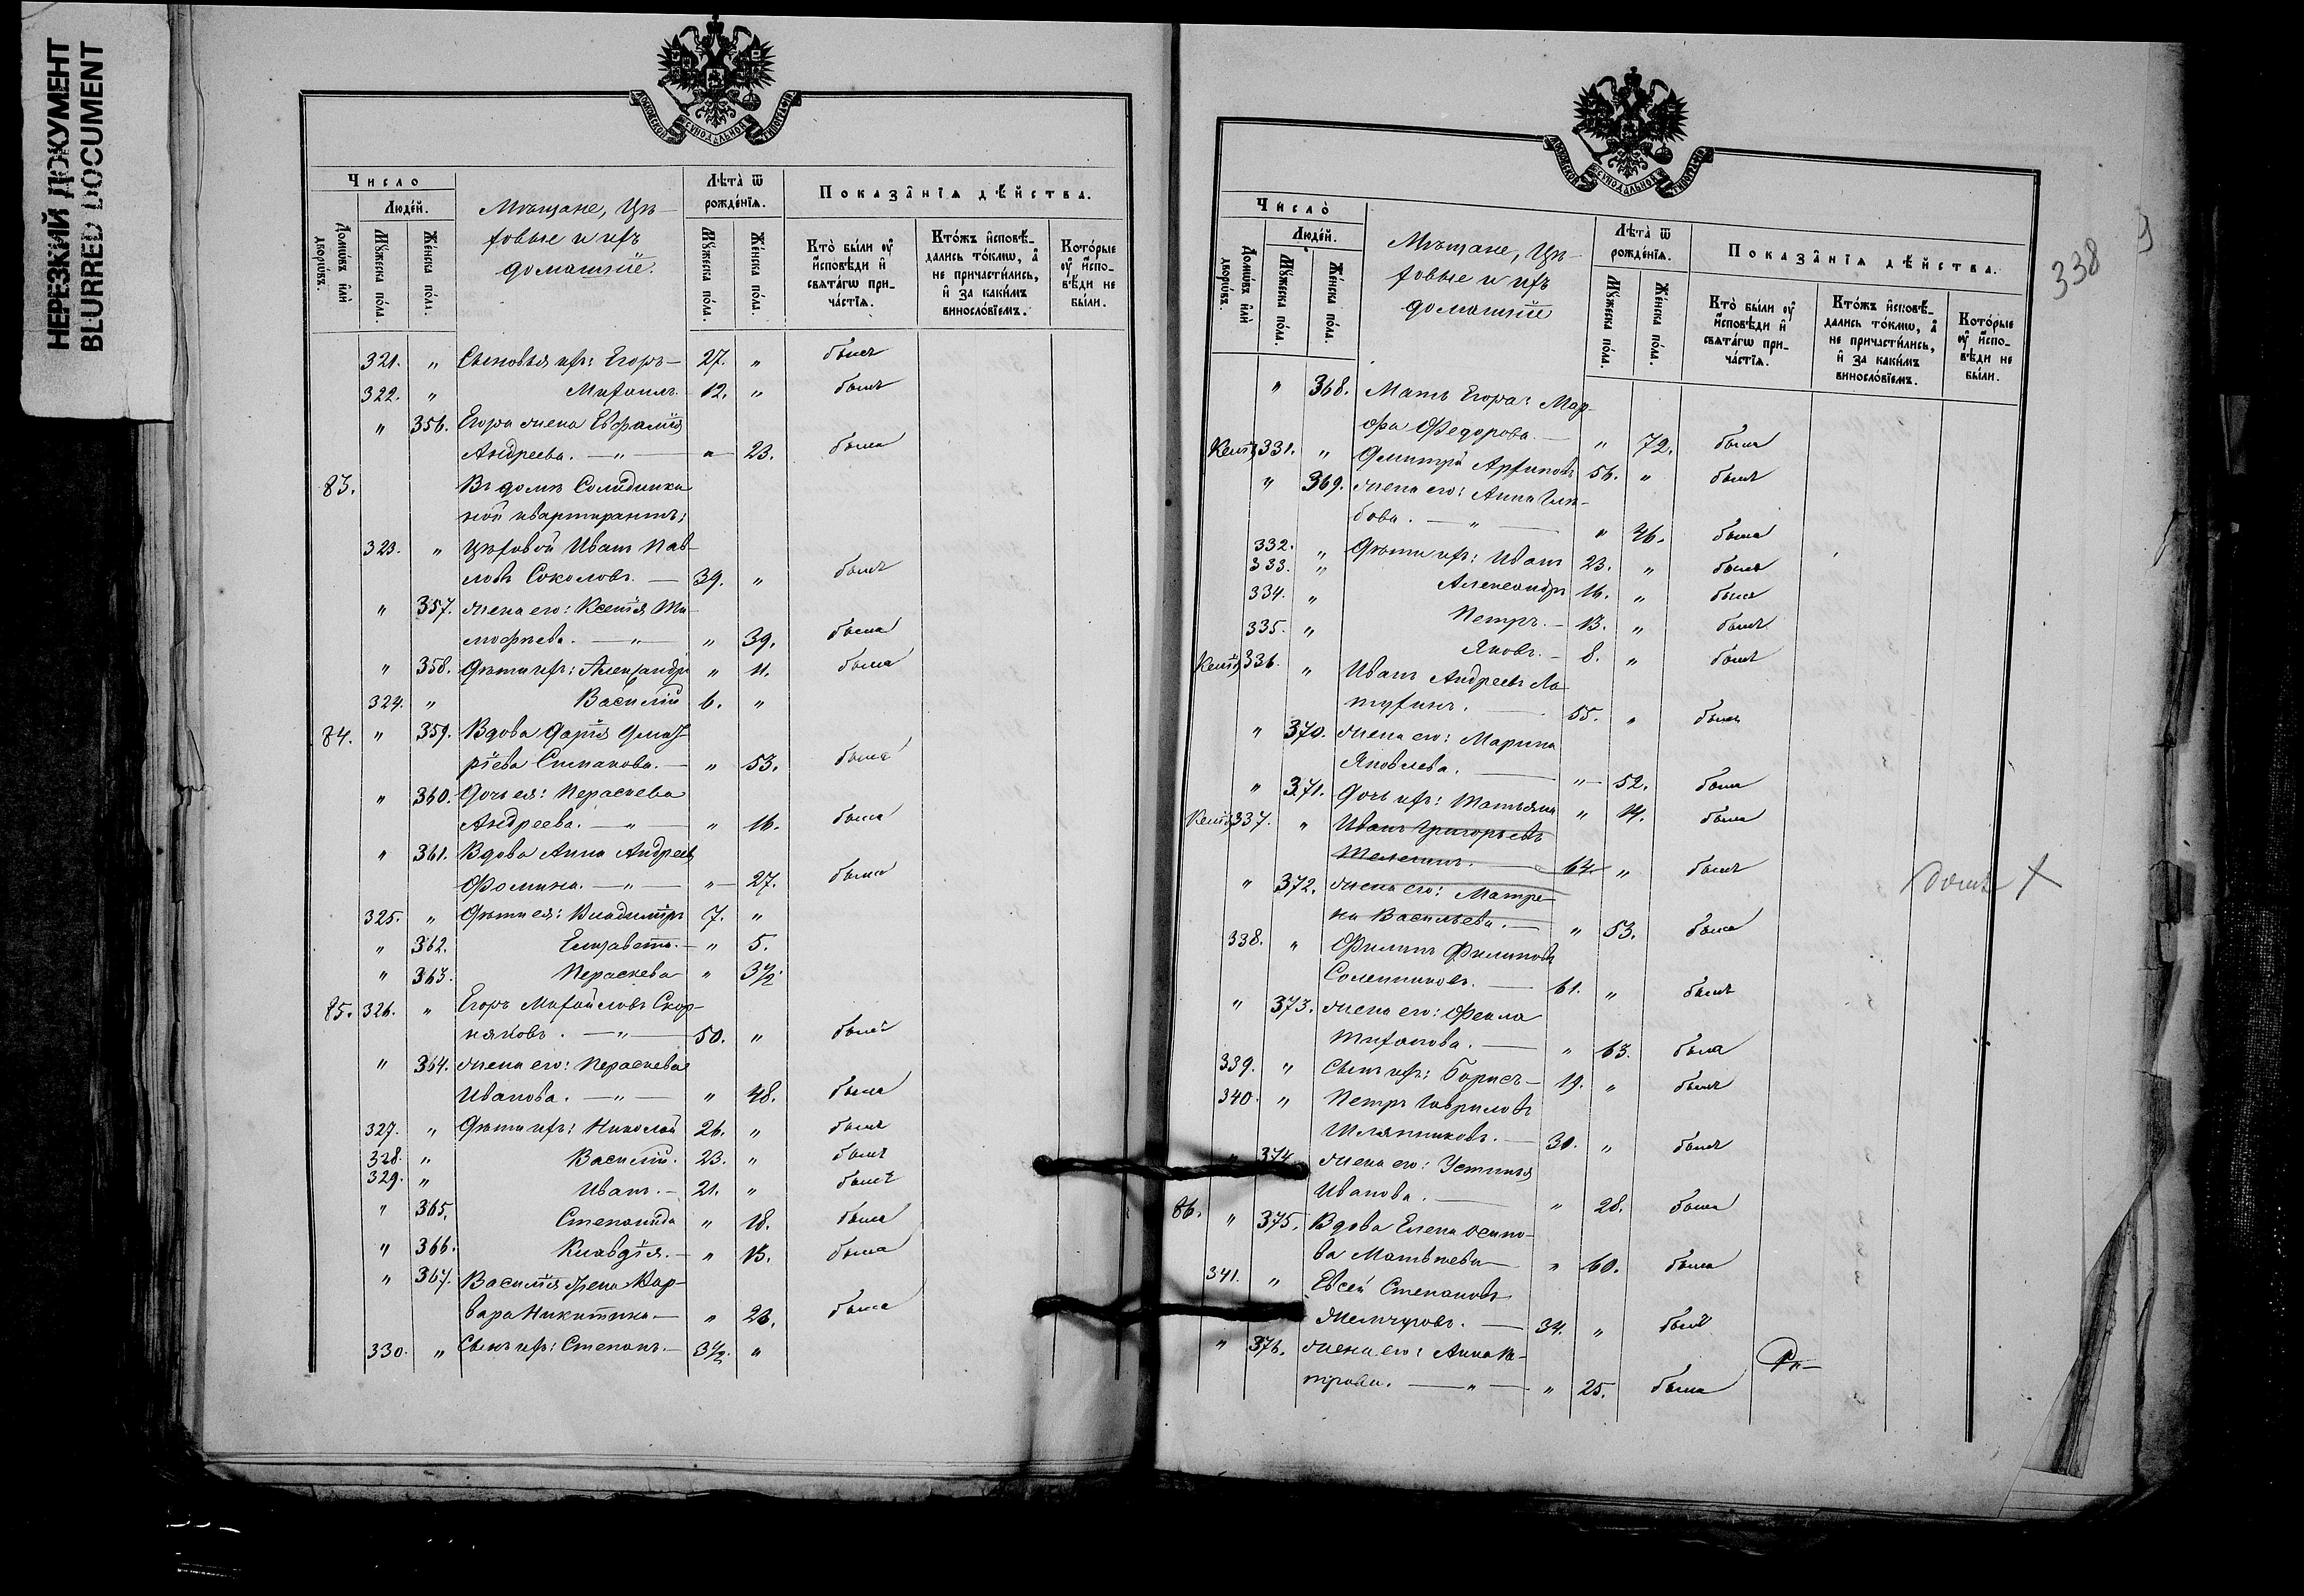 НЕРЕЗКИЙ ДОКУМЕНТ
BLURRED DOCUMENT
МОСКОВСКОЙ СѴНОДАЛЬНОЙ ТИПОГРАФІИ
Число
Людéй.
Домѡ́въ и҆лѝ дворѡ́въ.
Мꙋ́жеска по́ла.
Же́нска по́ла.
Мѣщане, Це-
ховые и ихъ
домашніе.
Лѣ́та ѿ рожде́нїѧ.
Мꙋ́жеска по́ла.
Же́нска по́ла.
Показа̑нїѧ дѣ́йства.
Кто̀ бы́ли ᲂу҆ и҆сповѣди и҆ свѧта́гѡ при-ча́стїѧ.
Кто́жъ и҆сповѣ́-дались то́кмѡ, а҆ не причасти́лись, и҆ за каки́мъ винослові́емъ.
Кото́рые ᲂу҆ и҆спо-вѣди не бы́ли.
321. " Сыновья ихъ: Егоръ — 27. " былъ
322. " Михаилъ. 12. " былъ
" 356. Егора жена Евфалія
Андреева. — " — " 23. была
83. Въ домѣ
ной квартирантъ:
323. " Цеховой Иванъ Пав-
ловъ Соколовъ. — 39. " былъ
" 357. жена его: Ксенія Ти-
мофѣева. — " — " 39. была
" 358. Дѣти ихъ: Александра " 11. была
324. " Василій 6. "
84. " 359. Вдова Дарія Дмит-
ріева Степанова. — " 53. была
" 360. Дочь ея: Параскева
Андреева. — " — " 16. была
" 361. Вдова Анна Андреев.
Фомина. — " — " 27. была
325. " Дѣти ея: Владиміръ 7. "
" 362. Елизавета. — " 5.
" 363. Параскева " 3½.
85. 326. " Егоръ Михайловъ Скор-
няковъ. — " — 50. " былъ
" 364. жена его: Параскева
Иванова. — " — " 48. была
327. " Дѣти ихъ: Николай 26. " былъ
328. " Василій. 23. " былъ
329. " Иванъ. — 21. " былъ
" 365. Степанида " 18. была
" 366. Клавдія. — " 13. была
" 367. Василія жена Вар-
вара Никитина — " 23. была
330. " Сынъ ихъ: Степанъ. — 3½. "
МОСКОВСКОЙ СѴНОДАЛЬНОЙ ТИПОГРАФІИ
338
Число̀
Людéй.
Домѡ́въ и҆лѝ дворѡ́въ.
Мꙋ́жеска по́ла.
Же́нска по́ла.
Мѣщане, Це-
ховые и ихъ
домашніе
Лѣ́та ѿ рожде́нїѧ.
Мꙋ́жеска по́ла.
Же́нска по́ла.
Показа̑нїѧ дѣ́йства.
Кто̀ бы́ли ᲂу҆ и҆сповѣди и҆ свѧта́гѡ при-ча́стїѧ.
Кто́жъ и҆сповѣ́-дались то́кмѡ, а҆ не причасти́лись, и҆ за каки́мъ винослові́емъ.
Кото́рые ᲂу҆ и҆спо-вѣди не бы́ли.
" 368. Мать Егора: Мар-
фа Федорова. — " 72. была
331. " Димитрій Архиповъ 56. " былъ
" 369. жена его: Анна Глѣ-
бова. — " — " 46. была
332. " Дѣти ихъ: Иванъ 23. " былъ
333. " Александръ 16. " былъ
334. " Петръ. — 13. " былъ
335. " Яковъ. — 8. " былъ
336. " Иванъ Андреевъ Ла-
тухинъ. — 55. " былъ
" 370. жена его: Марина
Яковлева. — " 52. была
" 371. Дочь ихъ: Татьяна " 14. была
337. " Иванъ Григорьевъ
64. " былъ
" 372. жена его: Матре-
на Васильева. — " 53. была
338. " Филипъ Филиповъ
Солепниковъ. — 61. " былъ
" 373. жена его: Фекла
Тихонова. — " 63. была
339. " Сынъ ихъ: Борисъ — 19. " былъ
340. " Петръ Гавриловъ
Шляпниковъ. — 30. " былъ
" 374. жена его: Устинья
Иванова. — " 28. была
86. " 375. Вдова Елена Осипо-
ва Матвѣева — " 60. была
341. " Евсей Степановъ
Жемчуговъ. — 34. " былъ
" 376. жена его: Анна Пе-
трова. — " — " 25. была